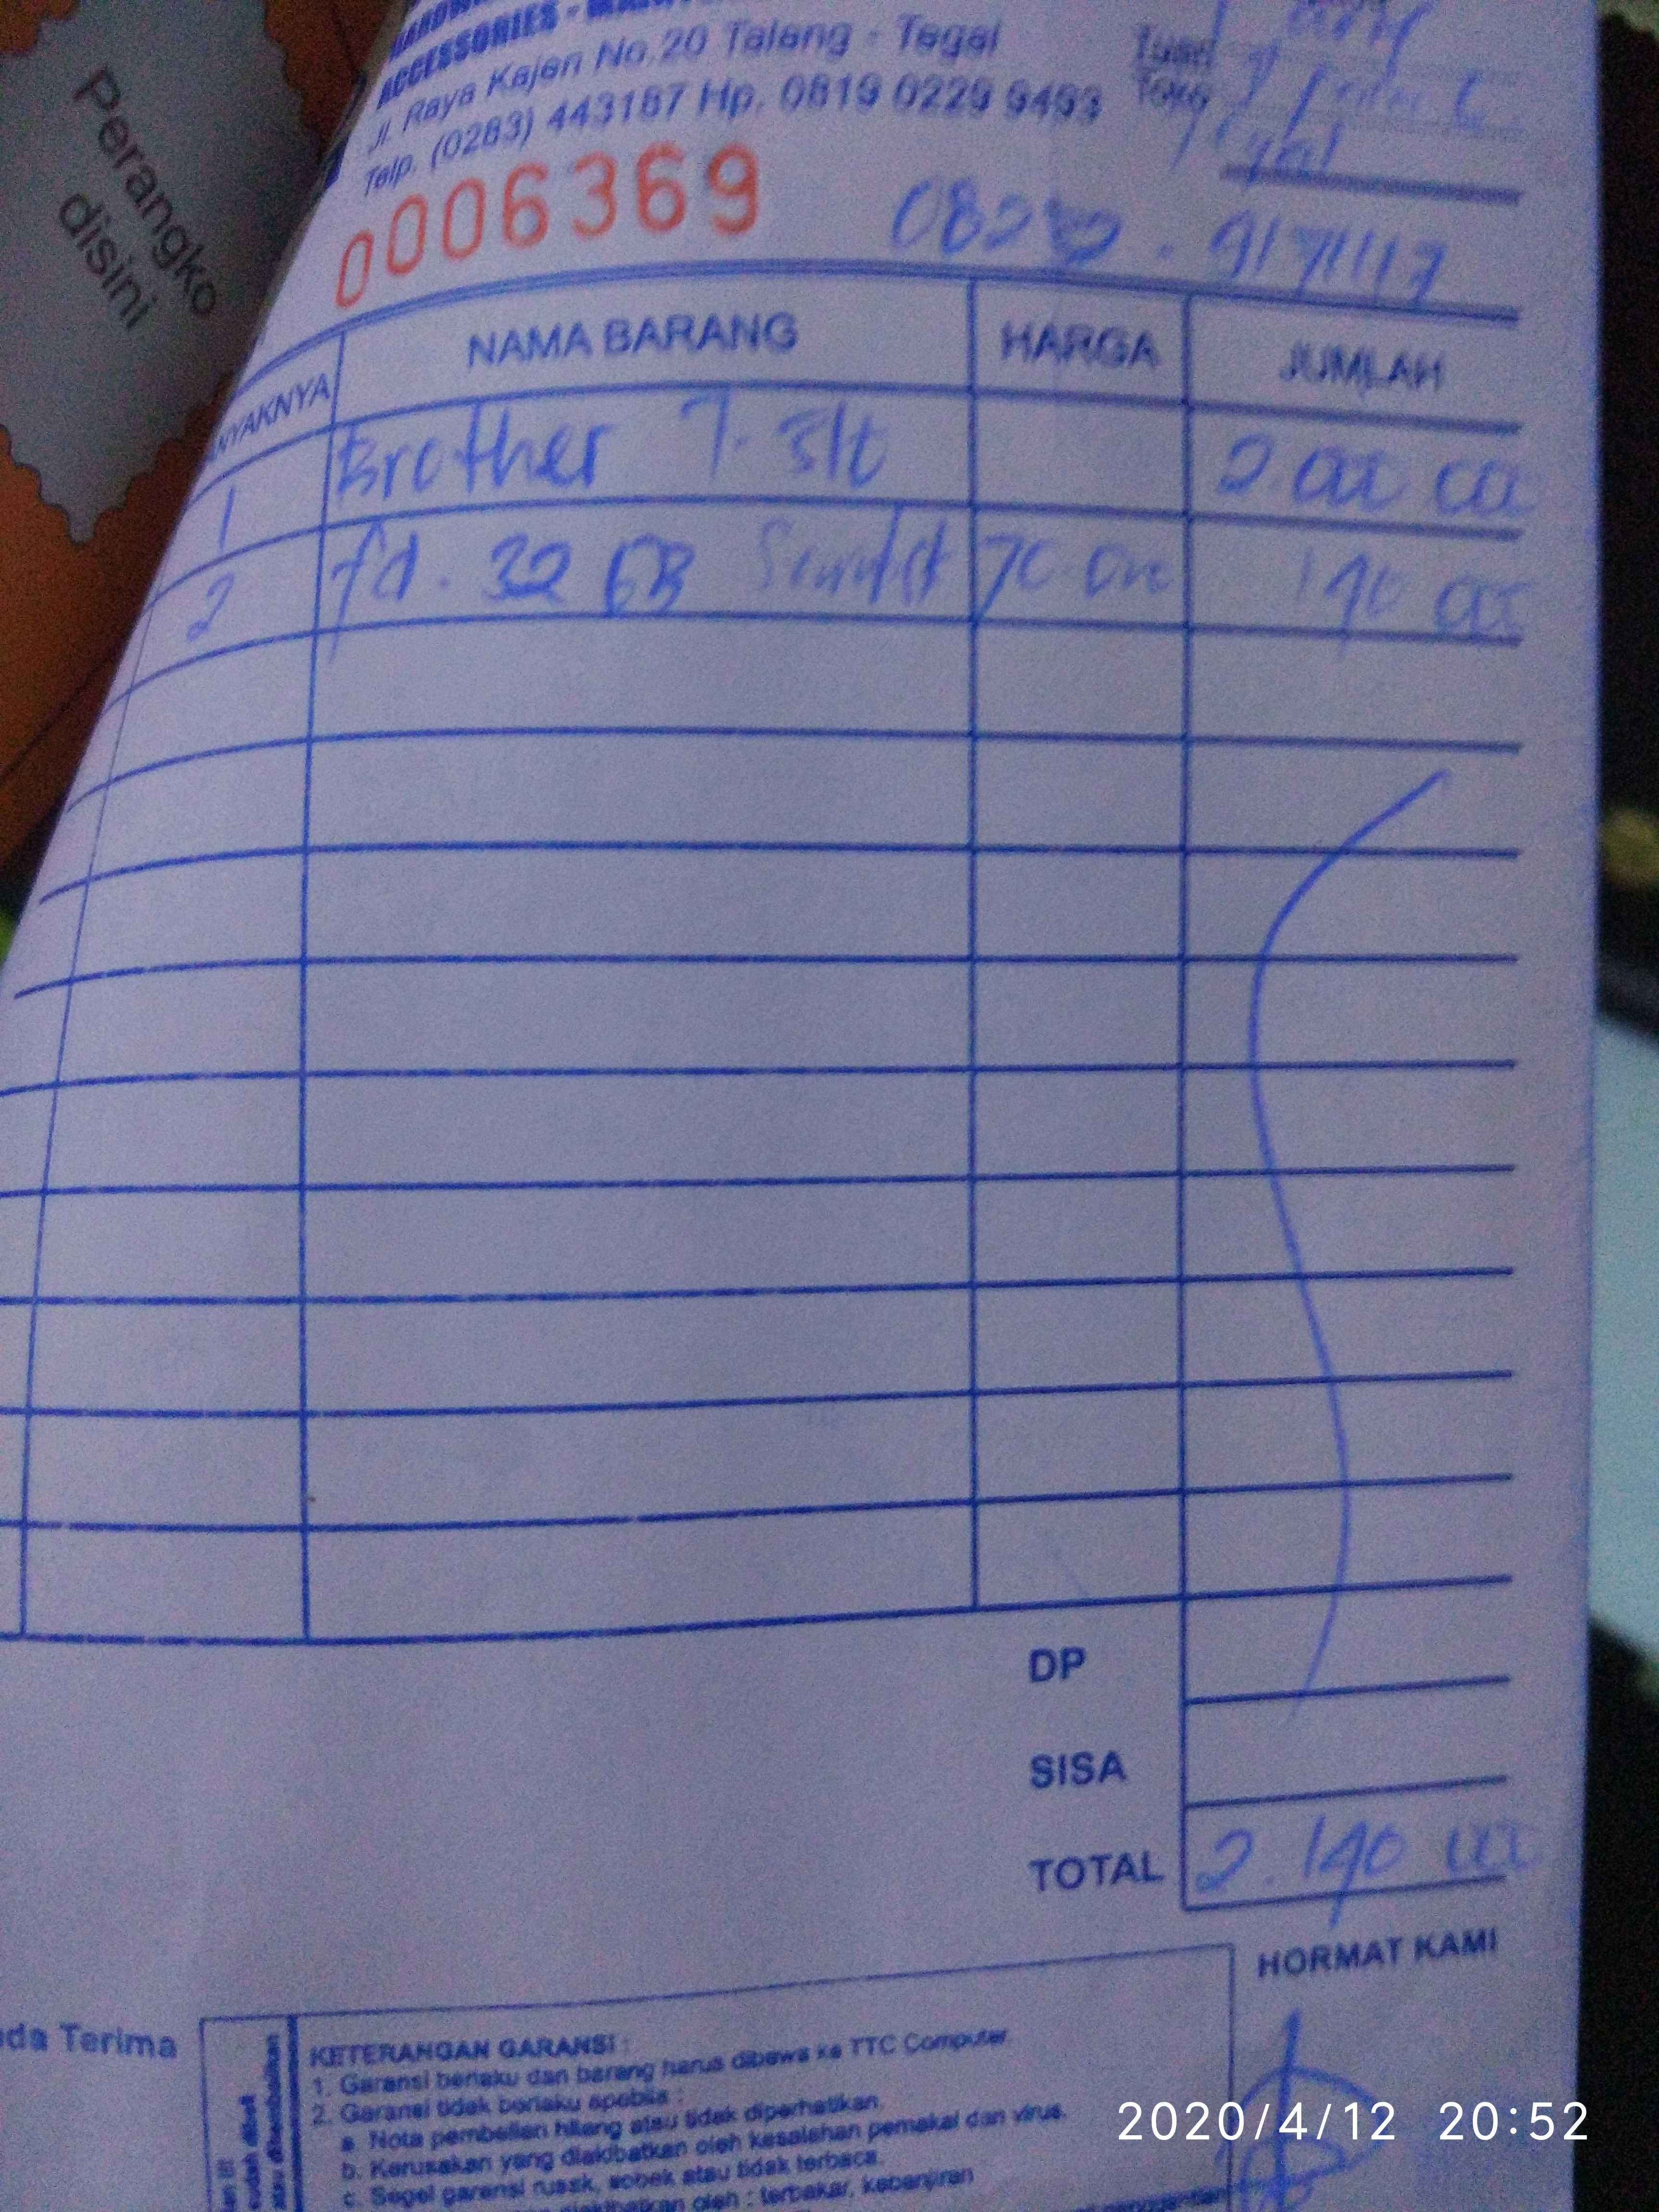 ACCESSORIES -
Jl. Raya Kajen No.20 Talang - Tegal
Telp. (0283) 443187 Hp. 0819 0229 9493
Tuan
Toko
Perangko
disini
0006369
NYAKNYA NAMA BARANG HARGA JUMLAH
1 Brother T-310 2.000 000
2 fd. 32 GB Sandisk 70.000 140 000
DP
SISA
TOTAL 2.140 000
HORMAT KAMI
da Terima
KETERANGAN GARANSI :
1. Garansi berlaku dan barang harus dibawa ke TTC Computer.
2. Garansi tidak berlaku apabila :
a. Nota pembelian hilang atau tidak diperhatikan.
b. Kerusakan yang diakibatkan oleh kesalahan pemakai dan virus.
c. Segel garansi rusak, sobek atau tidak terbaca.
diakibatkan oleh : terbakar, kebanjiran
sudah dibeli
atau dikembalikan
2020/4/12 20:52